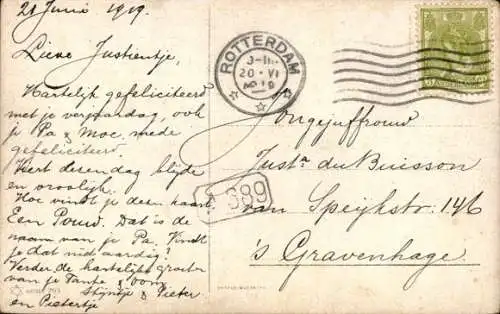 21 Juni 1919.
Lieve Justientje,
Hartelijk gefeliciteerd
met je verjaardag, ook
je Pa & Moe, mede
gefeliciteerd.
Viert dezen dag blijde
en vroolijk.
Hoe vindt je deze kaart
Een Pouw. Dat is de
naam van je Pa. Vindt
je dat niet aardig?
Verder de hartelijke groeten
van je Tante & Oom
Stijntje & Pieter
en Pietertje
ROTTERDAM
20 · VI
Jongejuffrouw
Justa du Buisson
van Speijkstr. 146
's Gravenhage.
S89